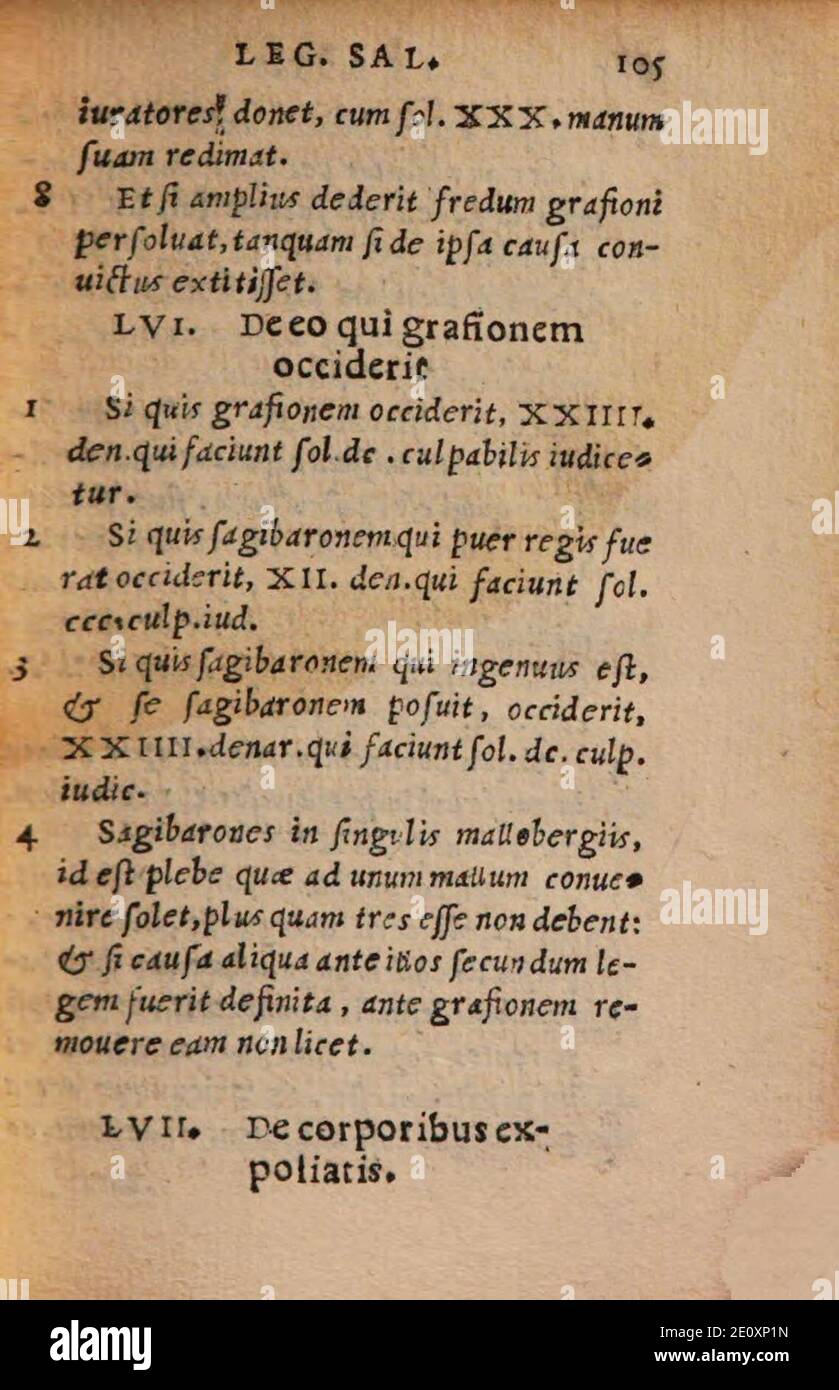 LEG. SAL. 105
iuratores donet, cum ſol. XXX. manum
ſuam redimat.
8 Et ſi amplius dederit fredum grafioni
perſoluat, tanquam ſi de ipſa cauſa con-
uictus extitiſſet.
LVI. De eo qui grafionem
occiderit
1 Si quis grafionem occiderit, XXIIII.
den. qui faciunt ſol. dc. culpabilis iudice-
tur.
2 Si quis ſagibaronem qui puer regis fue
rat occiderit, XII. den. qui faciunt ſol.
ccc. culp. iud.
3 Si quis ſagibaronem qui ingenuus eſt,
& ſe ſagibaronem poſuit, occiderit,
XXIIII. denar. qui faciunt ſol. dc. culp.
iudic.
4 Sagibarones in ſingulis mallobergiis,
id eſt plebe quæ ad unum mallum conue-
nire ſolet, plus quam tres eſſe non debent:
& ſi cauſa aliqua ante illos ſecundum le-
gem fuerit definita, ante grafionem re-
mouere eam non licet.
LVII. De corporibus ex-
poliatis.
alamy
alamy
alamy
alamy
Image ID: 2E0XP1N
www.alamy.com